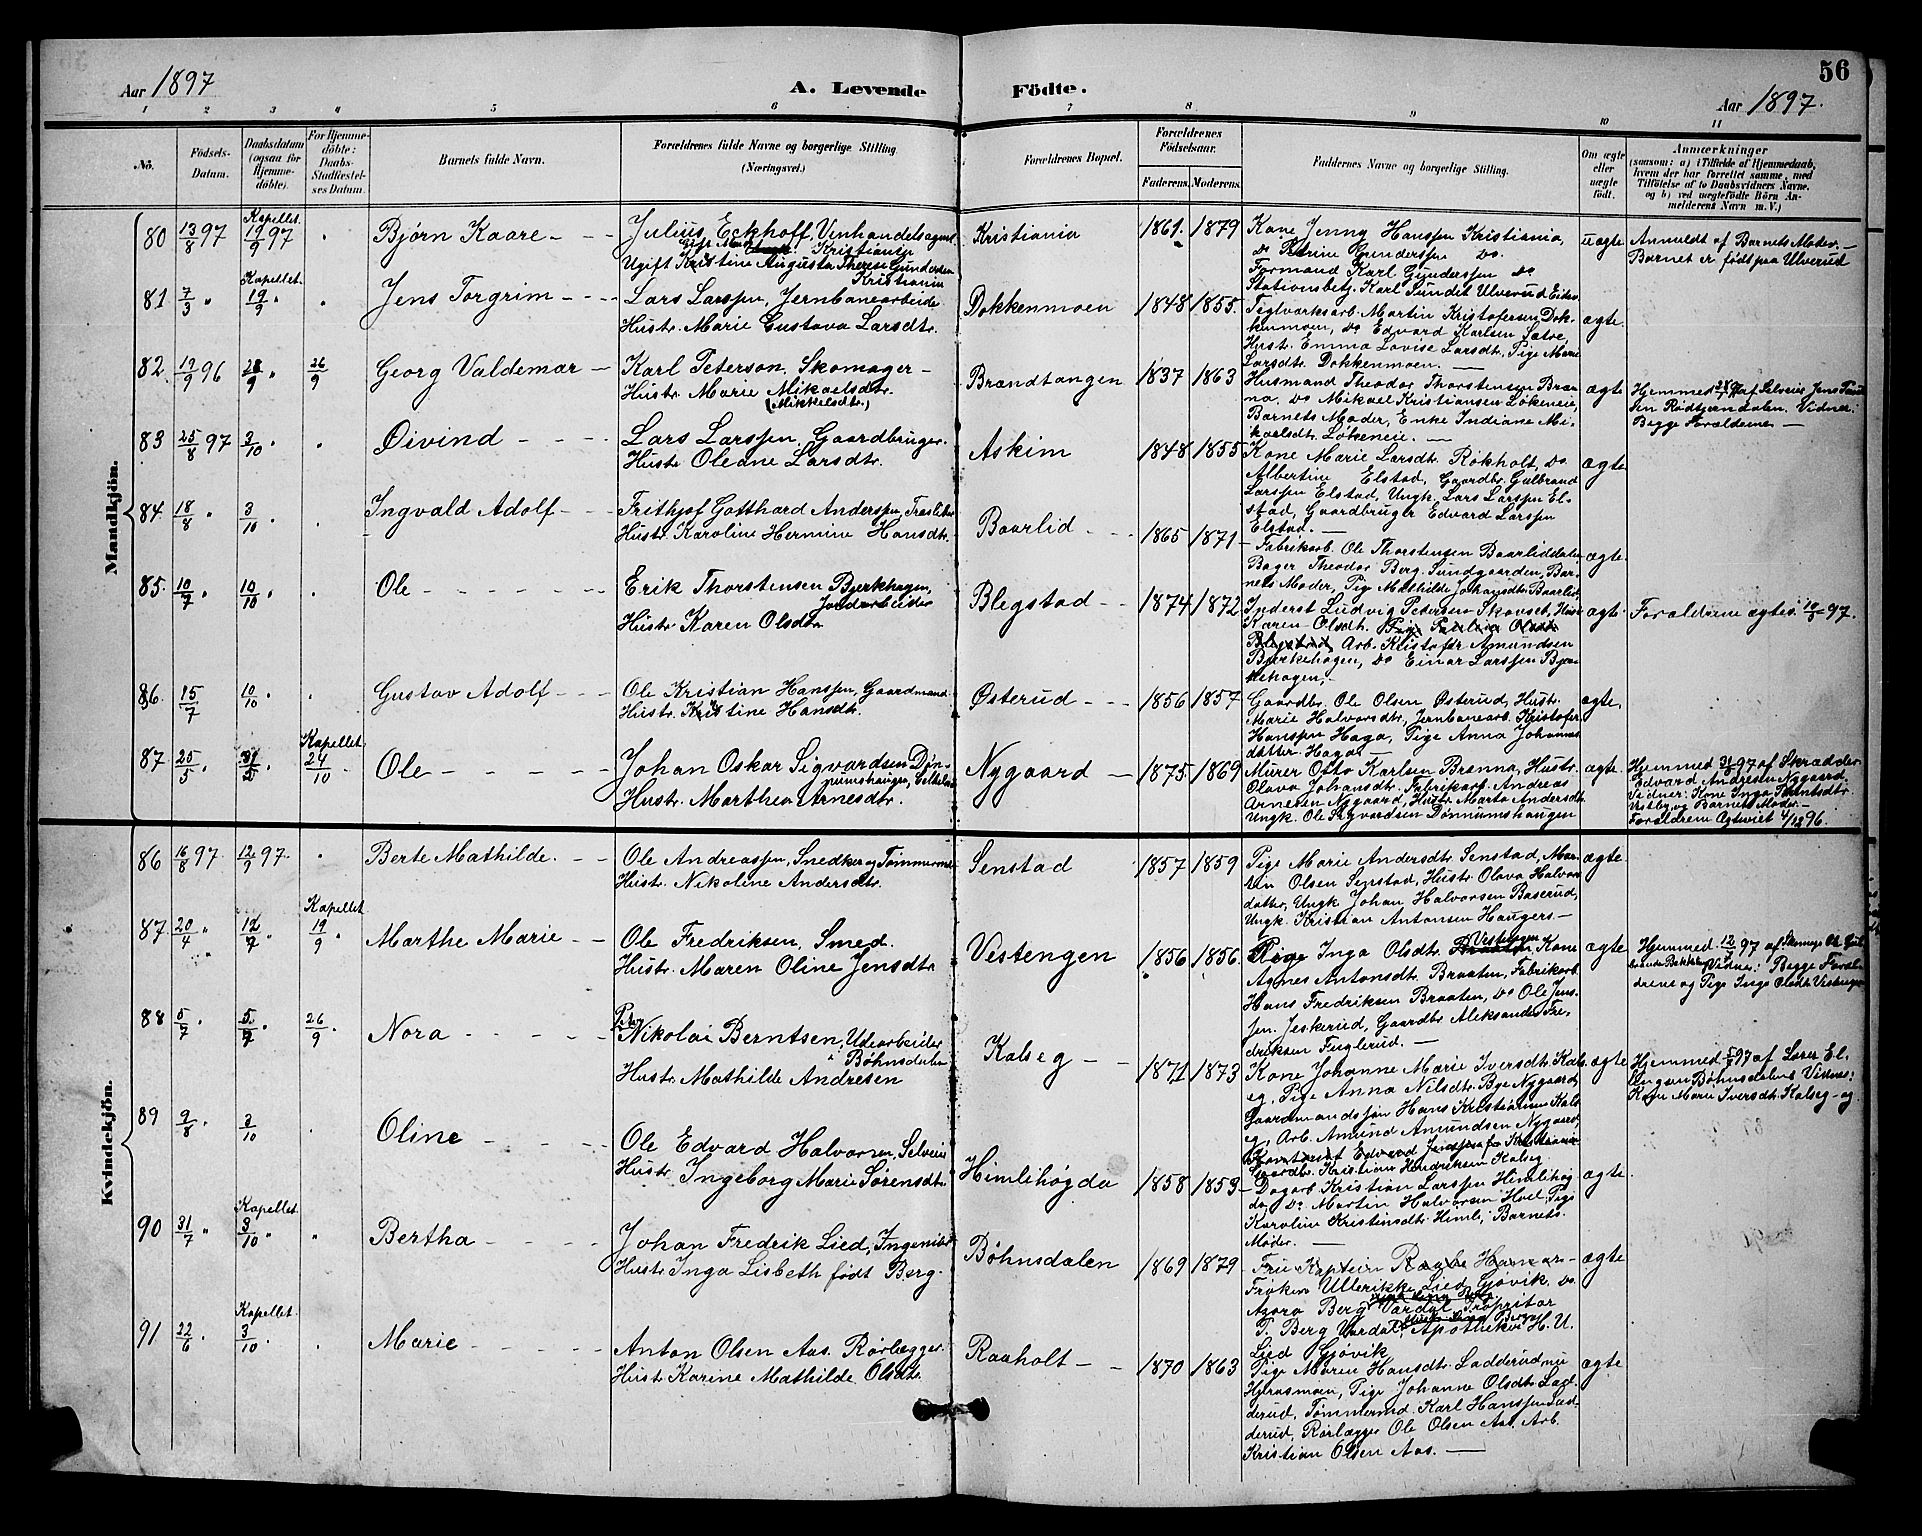 56
Aar 1897 A. Levende Födte. Aar 1897.
1 2 3 4 5 6 7 8 9 10 11
No. Födsels-Datum. Daabsdatum (ogsaa for Hjemmedöbte). For Hjemmedöbte: Daabs-Stadfæstelses Datum. Barnets fulde Navn. Forældrenes fulde Navne og borgerlige Stilling. (Næringsvei.) Forældrenes Bopæl. Forældrenes Födselsaar. Faderens. Moderens. Faddernes Navne og borgerlige Stilling. Om ægte eller uægte født. Anmærkninger (saasom: a) i Tilfælde af Hjemmedaab, hvem der har forrettet samme, med Tilföielse af to Daabsvidners Navne, og b) ved uægtefödte Börn Anmelderens Navn m. V.)
Mandkjön.
80 13/8 97 Kapellet 19/9 97 Bjørn Kaare Julius Eckhoff, Vinhandelsagent Kristiania
Ugift Kristine Augusta Therese Gundersen Kristiania
Kristiania 1861. 1879 Kone Jenny Hanssen Kristiania,
Do Karine Gunderssen Do
Formand Karl Gunderssen Do
Stationsbetj. Karl Sundet Ulverud Eidsv.
uægte Anmeldt af Barnets Moder.
Barnet er født paa Ulverud
81 7/3 " Kapellet 19/9 Jens Torgrim Lars Larssen, Jernbanearbeide
Hustr. Marie Gustava Larsdtr.
Dokkenmoen 1848 1855. Teglværksarb. Martin Kristofersen Dok-
kenmoen, Do Edvard Karlsen Sætre,
Hustr. Emma Lovise Larsdtr, Pige Marie
Larsdtr. Dokkenmoen.
ægte
82. 19/9 96 28/9 26/9 Georg Valdemar Karl Peterson, Skomager
Hustr. Marie Mikaelsdtr.
(Mikkelsdtr.)
Brandtangen 1837 1863 Husmand Theodor Thorstensen Bran-
na, Do Mikael Kristiansen Løkeneie,
Barnets Moder, Enke Indiane Mi-
kaelsdtr. Løkeneie.
ægte Hjemmed. af Selveier Jens
Rødtjerndalen. Vidner:
Begge Forældrene
83 25/8 97 3/10 Øivind Lars Larssen, Gaardbruger.
Hustr. Oleane Larsdtr.
Askim 1848 1855 Kone Marie Larsdtr. Røkholt, Do
Albertine Elstad, Gaardbr. Gulbrand
Larssen Elstad, Ungk. Lars Larssen El-
stad, Gaardbruger Edvard Larssen
Elstad.
ægte
84. 18/8 " 3/10 Ingvald Adolf Frithjof Gotthard Anderssen, Træsliber
Hustr. Karoline Hermine Hansdtr.
Baarlid 1865 1871 Fabrikarb. Ole Thorstensen Baarliddalen
Bager Theodor Berg, Sundgaarden, Bar-
nets Moder, Pige Mathilde Johansdtr Baarlid
ægte
85. 10/7 10/10 Ole Erik Thorstensen Bjerkhagen,
Jordarbeider
Hustr Karen Olsdtr
Blegstad 1874 1872 Inderst Ludvig Petersen Skovset, Hustr
Karen Olsdtr. Arb. Kristofer Amundsen
Bjerkehagen, Do Einar Larssen Bjer-
kehagen,
ægte. Forældrene ægtev. 10/5 97.
86. 15/7 10/10 Gustav Adolf Ole Kristian Hanssen, Gaardmand
Hustr. Kristine Hansdtr.
Østerud 1856 1857 Gaardbr. Ole Olsen Østerud, Hustr.
Marie Halvorsdtr, Jernbanearb. Kristofer
Hanssen Haga, Pige Anna Johannes
datter Haga.
ægte,
87 20/5 31/5 Kapellet 24/10 Ole Johan Oskar Sigvardsen Døn-
numshaugen,
Hustr. Marthea Arnesdtr.
Nygaard 1875 1869 Murer Otto Karlsen Branna, Hustr.
Olava Johansdtr, Fabrikarb. Andreas
Arnesen Nygaard, Hustr. Marta Andersdtr
Ungk. Ole Sigvardsen Dønnumshaugen
ægte Hjemmed. af Skrædder
Edvard Andresen Nygaard
Vidner: Kone Inga
Vestby, og Barnets Moder.
Forældrene Ægteviet 4/12 96.
Kvindekjön.
86 16/8 97 12/9 97. Berte Mathilde. Ole Andreassen, Snedker og Tømmerm.
Hustr. Nikoline Andersdtr.
Senstad 1857 1859 Pige Marie Andersdtr. Senstad, Mar-
tin Olsen Senstad, Hustr. Olava Halvors
datter, Ungk Johan Halvorsen Baserud,
Ungk. Kristian Antonsen Haugers.
ægte
87. 20/4 12/7 Kapellet 19/9 Marthe Marie Ole Fredriksen, Smed.
Hustr. Maren Oline Jensdtr
Vestengen 1856 1856. Pige Inga Olsdtr Vestengen Kone
Agnes Antonsdtr. Braaten, Fabrikarb.
Hans Fredriksen Braaten, Do Ole Jens-
sen Jeskerud, Gaardbr Aleksander Fre-
driksen Fuglerud.
ægte Hjemmed. 12/7 97 af
Vidner: Begge Foræl-
drene og Pige Inga Olsdtr Vestengen
88 5/7 5/7 26/9 Nora Peter Nikolai Berntsen, Udearbeider
i Bøhnsdalen
Hustr. Mathilde Andresen
Kalseg 1871 1873 Kone Johanne Marie Iversdtr Kals-
eg, Pige Anna Nilsdtr. Bye Nygaard,
Gaardmandssøn Hans Kristiansen Kals-
eg, Arb. Amund Amundsen Nygaard,
Kontorist Edvard Jenssen fr. Kristiania
Gaardbr. Kristian Hendriksen Kalseg.
ægte Hjemmed 5/7 97 af Lærer El-
lingsen Bøhnsdalen. Vidner:
Kone Marie Iversdtr. Kalseg og
89 9/8 3/10 Oline Ole Edvard Halvorsen, Selveier
Hustr. Ingeborg Marie Sørensdtr
Himlihøgda 1858 1859 Dagarb Kristian Larssen Himlihøg
da, Do Martin Halvorsen Hoel, Pige
Karoline Kristinsdtr. Himli, Barnets
Moder.
ægte
90 31/7 " Kapellet 3/10 " Bertha Johan Fredrik Lied, Ingeniør
Hustr. Inga Lisbeth født Berg
Bøhnsdalen 1869 1879 Fru Kaptein Raabe Hamar
Frøken Ullerikke Lied Gjøvik, Do
Azora Berg Vardal, Proprietær
T. Berg Vardal, Apotheker H. U.
Lied Gjøvik
ægte
91 22/6 Kapellet 3/10 Marie Anton Olsen Aas. Rørlægger
Hustr. Karine Mathilde Olsdtr.
Raaholt 1870 1863 Pige Maren Hansdtr. Ladderud nu
Hjerasmoen, Pige Johanne Olsdtr Lad-
derud, Tømmermd. Karl Hanssen Lad-
derud, Rørlægger Ole Olsen Aas, Arb.
Kristian Olsen Aas.
ægte